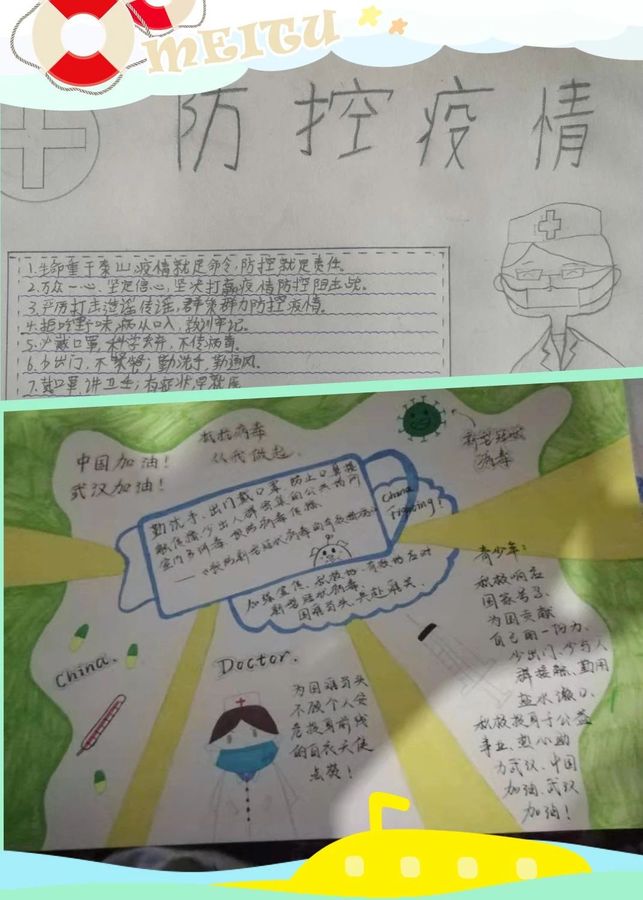 MEITU
防控疫情
1.生命重于泰山,疫情就是命令,防控就是责任。
2.万众一心、坚定信心,坚决打赢疫情防控阻击战。
3.严厉打击造谣传谣,群策群力防控疫情。
4.拒吃野味,病从口入,教训牢记。
5.少戴口罩,科学 不传病毒。
6.少出门,不聚餐;勤洗手,勤通风。
7.戴口罩,讲卫生;有症状,早就医
中国加油!
武汉加油!
抗抗病毒
从我做起.
新型冠状
病毒
勤洗手、出门戴口罩,防止口鼻接
触传播,少出人群密集的公共场所
室内多阴毒,
China
fighting!
加强宣传、积极的、有效的应对
新型冠状病毒、
国难当头、共赴难关.
China.
Doctor.
为国难当头
不顾个人安
危投身前线
的白衣天使
点赞!
青少年:
积极响应
国家号召、
为国贡献
自己的一份力、
少出门、少与人
群接触、勤用
盐水漱口、
积极投身于公益
事业、热心助
力武汉、中国
加油、武汉
加油!